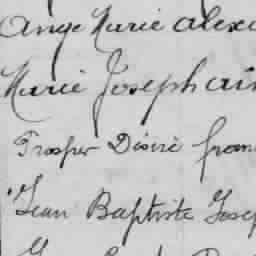 Ange Marie Alex
Marie Joseph ai
Prosper Désiré fran
Jean Baptiste Josep